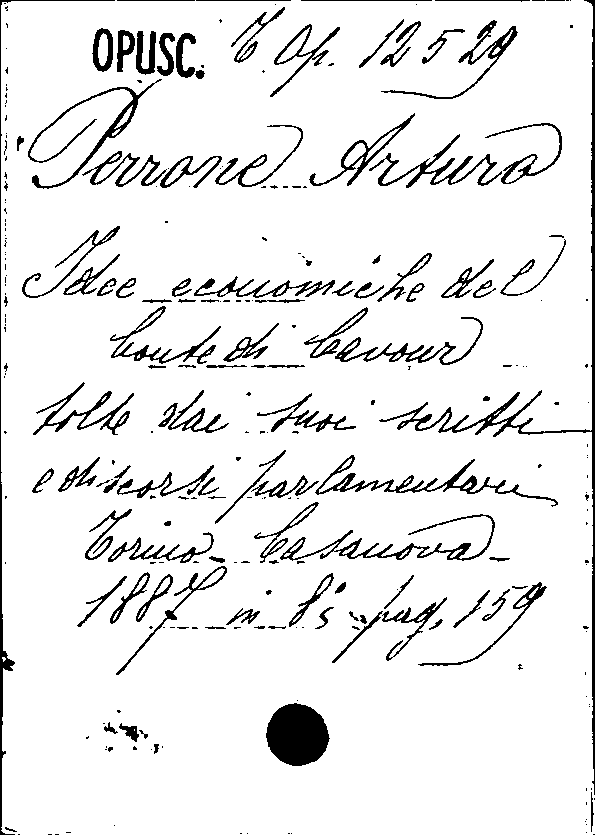 OPUSC. T. Op. 12529
Perrone Arturo
Idee economiche del
Conte di Cavour
tolte dai suoi scritti
e discorsi parlamentari
Torino - Casanova -
1887 in 8°s pag. 159